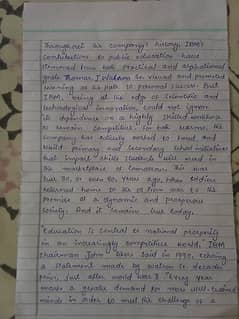 Throughout its company history, IBM's
Contributions to public education have
stemmed from both Practical and aspirational
goals. Thomas J. Watson Sr. viewed and promoted
learning as the path to personal success. But
IBM, being at the edge of scientific and
technological innovation, could not ignore
its dependence on a highly skilled workforce
to remain competitive. For both reasons, the
company has actively worked to fund and
build primary and secondary school initiatives
that impart skills students will need in
the marketplace of tomorrow. This was
true 30, or even 60, years ago, when soldiers
returned home to the US from war to the
Promise of a dynamic and prosperous
society. And it remains true today.
Education is central to national prosperity
in an increasingly competitive world, IBM
Chairman John Akers said in 1990, echoing
a statement made by Watson Sr decades
prior, just after world war II. Every year
marks a greater demand for more well-trained
minds in order to meet the challenge of a